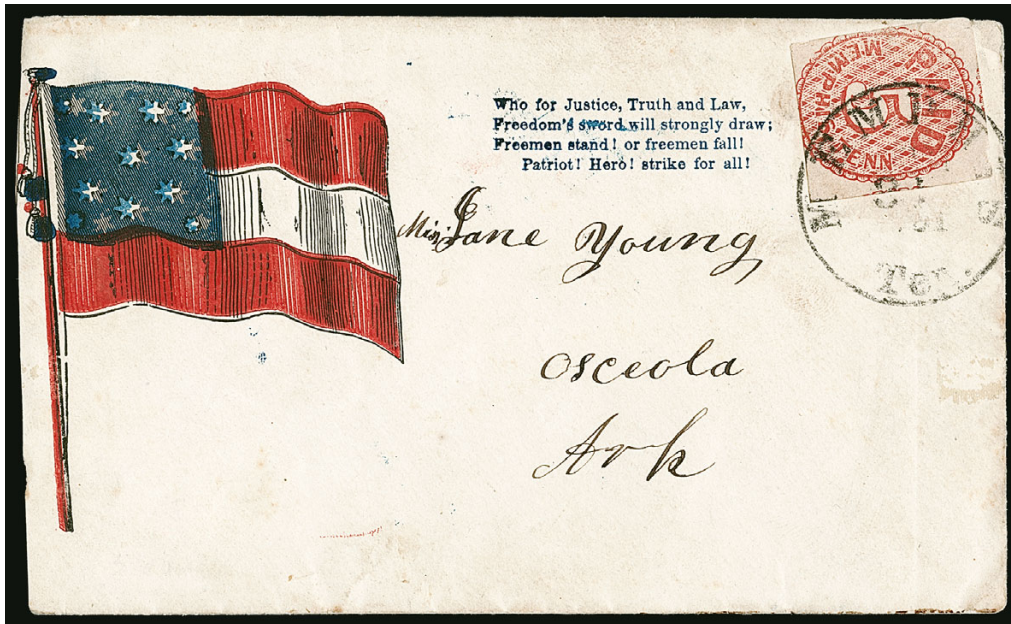 Who for Justice, Truth and Law,
Freedom's sword will strongly draw;
Freemen stand! or freemen fall!
Patriot! Hero! strike for all!
PAID
5
MEMPHIS TENN
Ten.
Miss Jane Young
Osceola
Ark